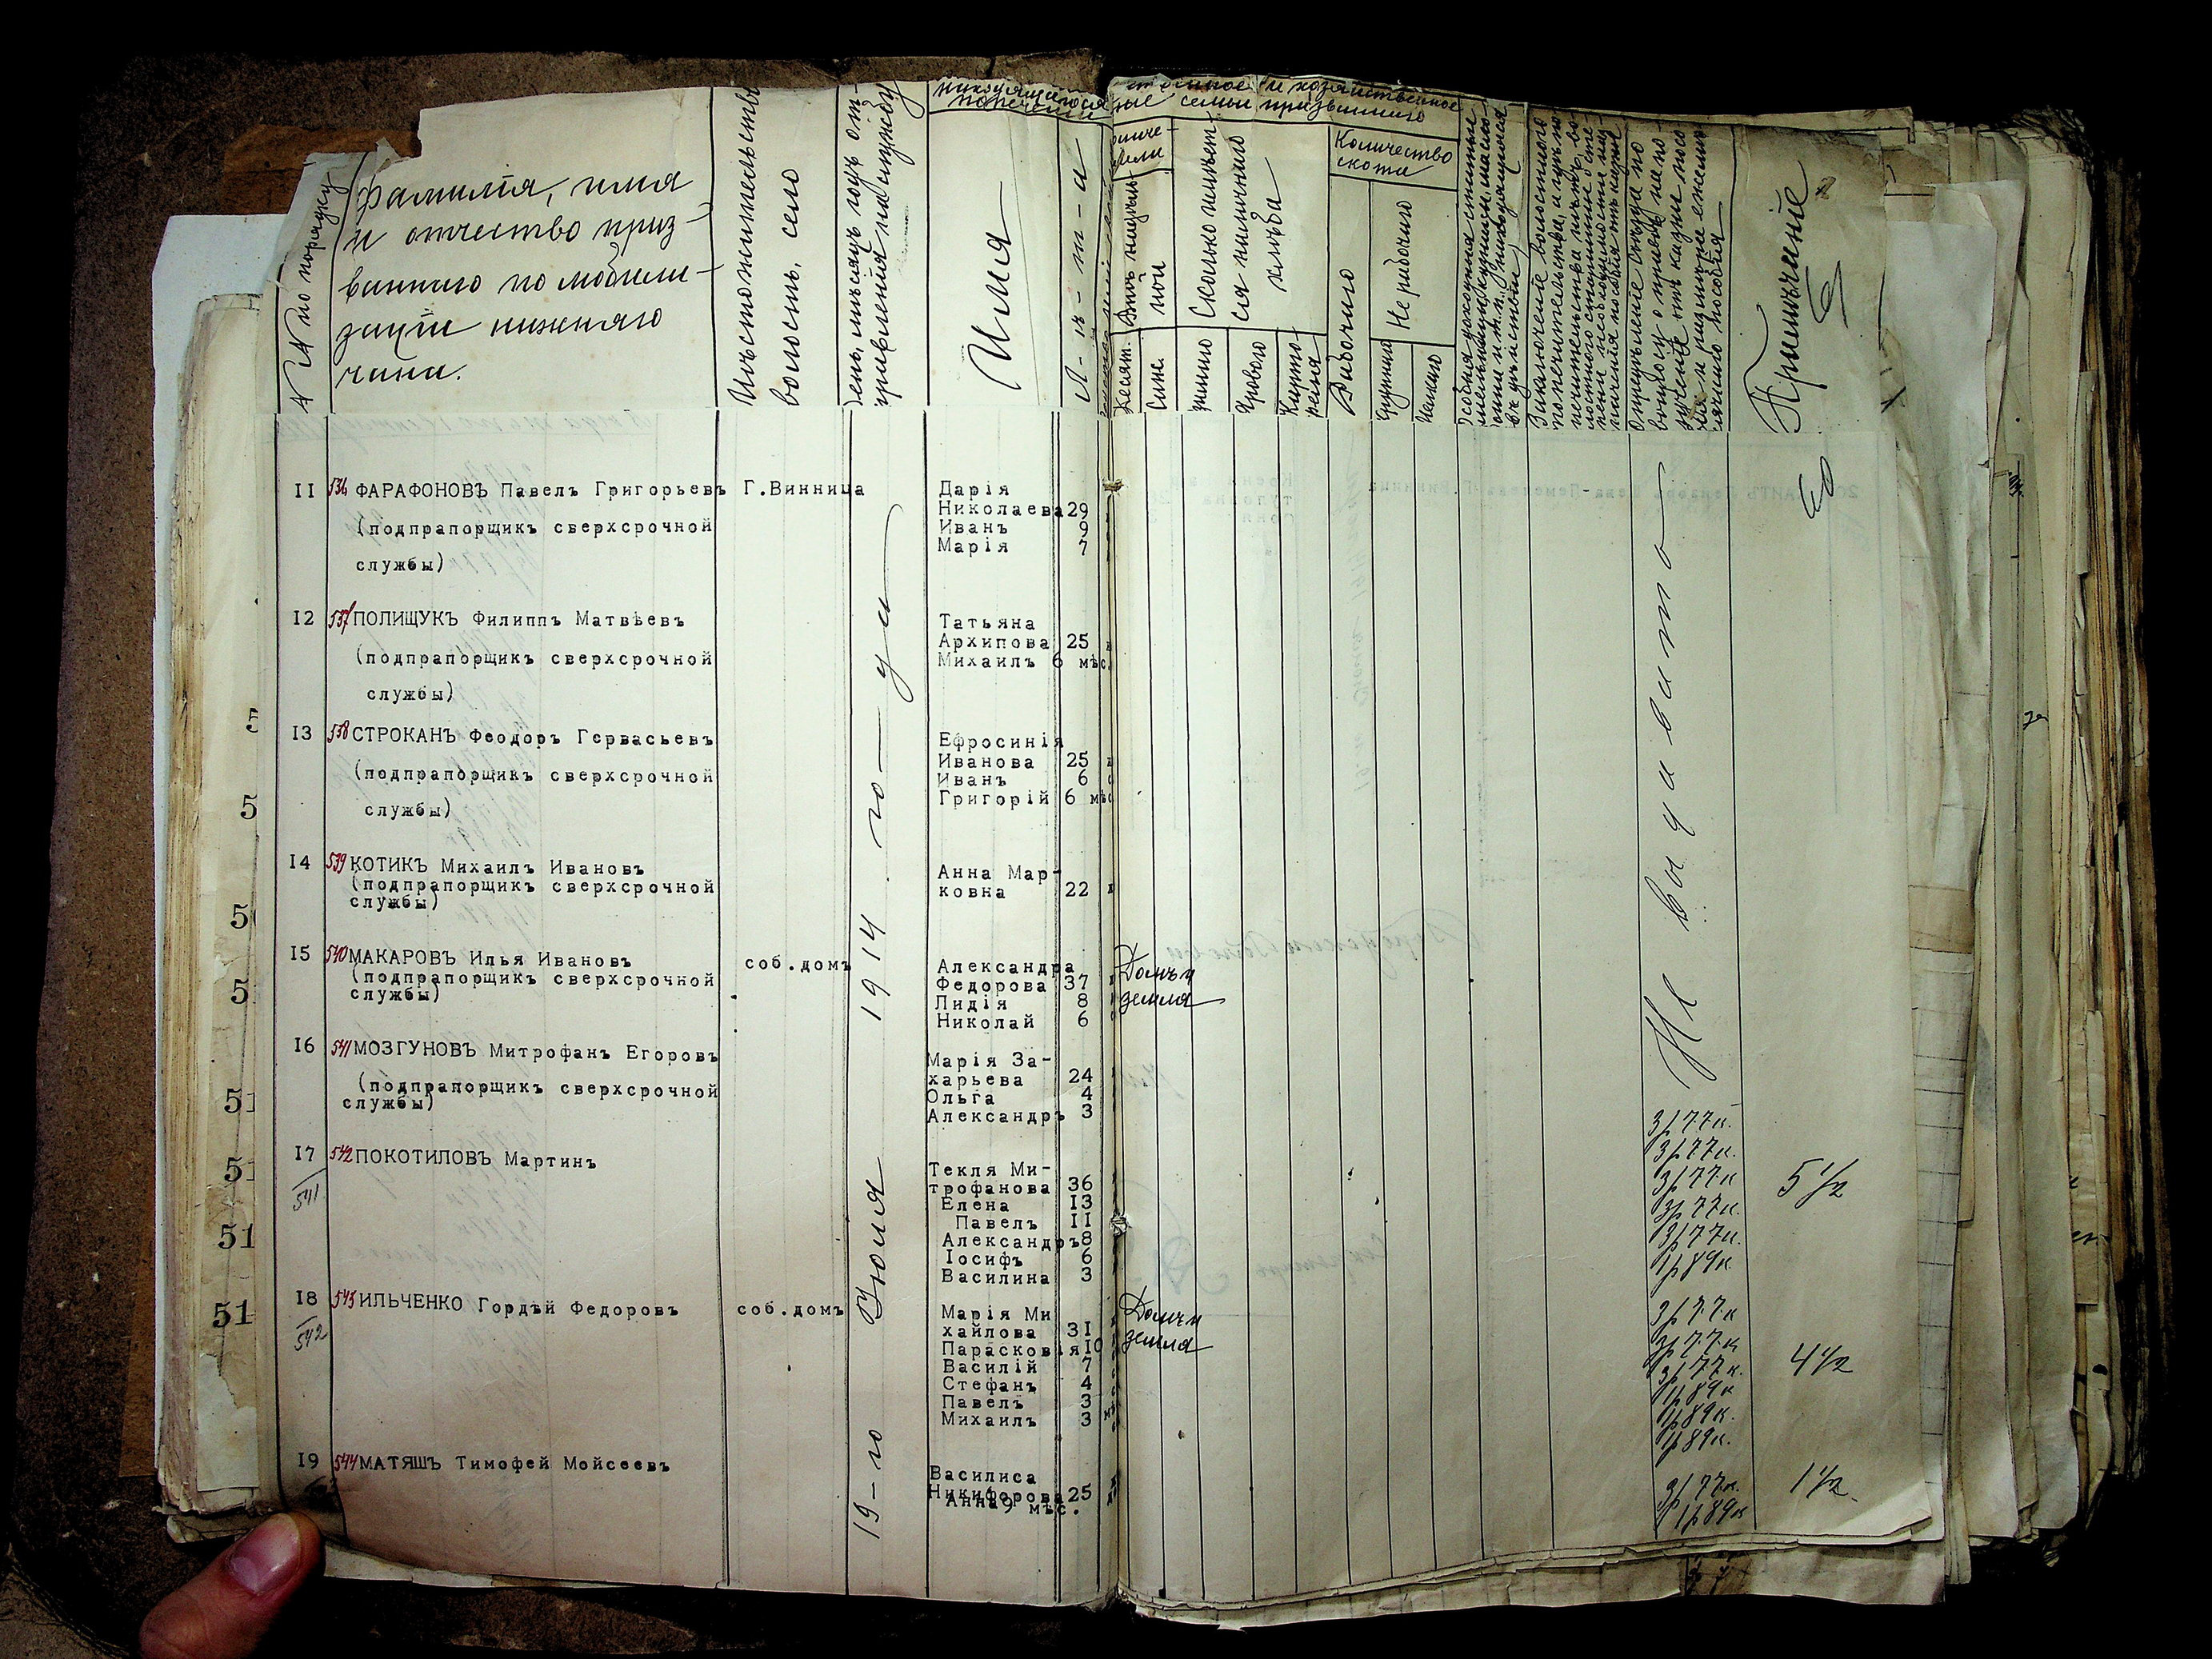 №№ по порядку
Фамилія, имя
и отчество приз-
ваннаго по мобили-
заціи нижняго
чина.
Мѣстожительство
волость, село
День, мѣсяцъ, годъ от-
правленія на службу
находящагося
попеченіи
Имя
Л-ѣ-т-а
и хозяйственное
семьи призваннаго
надѣль-
ной
Десят.
Саж.
Сколько имѣет-
ся наличнаго
хлѣба
озимаго
Ярового
Карто-
феля
Количество
скота
Рабочаго
Не рабочаго
Крупнаго
Мелкаго
Примѣчаніе
II 536 ФАРАФОНОВЪ Павелъ Григорьевъ Г.Винница
(подпрапорщикъ сверхсрочной
службы)
Дарія
Николаева 29
Иванъ 9
Марія 7
I2 537 ПОЛИЩУКЪ Филиппъ Матвѣевъ
(подпрапорщикъ сверхсрочной
службы)
Татьяна
Архипова 25
Михаилъ 6 мѣс.
I3 538 СТРОКАНЪ Феодоръ Гервасьевъ
(подпрапорщикъ сверхсрочной
службы)
Ефросинія
Иванова 25
Иванъ 6
Григорій 6 мѣс
I4 539 КОТИКЪ Михаилъ Ивановъ
(подпрапорщикъ сверхсрочной
службы)
Анна Мар-
ковна 22
I5 540 МАКАРОВЪ Илья Ивановъ соб.домъ
(подпрапорщикъ сверхсрочной
службы)
Александра
Федорова 37
Лидія 8
Николай 6
Домъ и
земля
I6 541 МОЗГУНОВЪ Митрофанъ Егоровъ
(подпрапорщикъ сверхсрочной
службы)
Марія За-
харьева 24
Ольга 4
Александръ 3
I7 542 ПОКОТИЛОВЪ Мартинъ
541
Текля Ми-
трофанова 36
Елена I3
Павелъ II
Александръ 8
Іосифъ 6
Василина 3
3р 77к.
3р 77к.
3р 77к
3р 77к.
3р 77к.
1р 89к
5 1/2
I8 543 ИЛЬЧЕНКО Гордѣй Федоровъ соб.домъ
542
Марія Ми
хайлова 3I
Парасковія I0
Василій 7
Стефанъ 4
Павелъ 3
Михаилъ 3 м
Домъ и
земля
3р 77к
3р 77к
3р 77к.
1р 89к
1р 89к.
1р 89к.
4 1/2
I9 544 МАТЯШЪ Тимофей Мойсеевъ
Василиса
Никифорова 25
Анна 9 мѣс.
3р 77к.
1р 89к
1 1/2
19-го Іюля 1914 го- да
Не выдавать